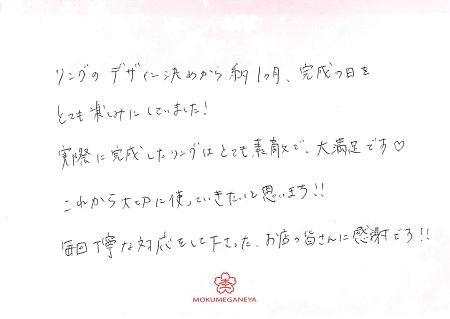 リングのデザイン決めから約1ヶ月、完成の日を
とても楽しみにしていました!
実際に完成したリングはとても素敵で、大満足です♡
これから大切に使っていきたいと思います!!
毎回丁寧な対応をして下さった、お店の皆さんに感謝です!!
MOKUMEGANEYA